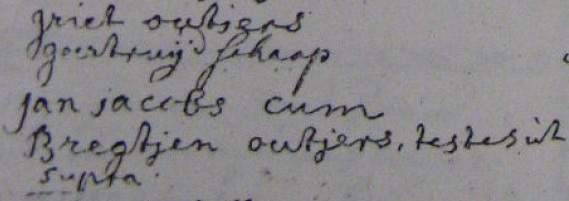 griet outjers
geertruijd schaap
jan jacobs cum
Bregtjen outjers, testes ut
supra.